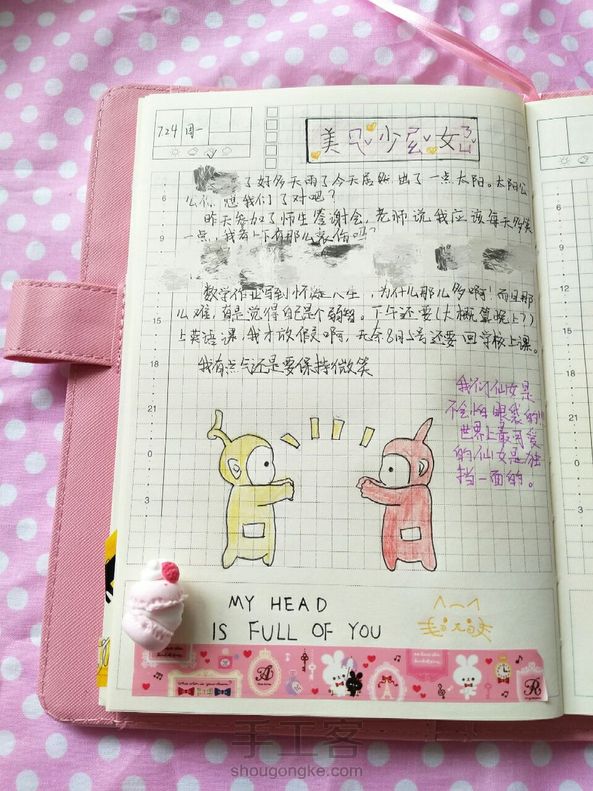 7.24 周一
美 少 女
了好多天雨了今天居然出了一点太阳。太阳公
么你 想我们了对吧？
昨天参加了师生答谢会，老师说我应该每天多笑
一点，我有
数学作业写到怀疑人生，为什么那么多啊！而且那
么难，真是觉得自己是个弱智。下午还要(大概算晚上？)
上英语课，我才放假啊，无奈8月5号还要回学校上课。
我有点气还是要保持微笑
我们仙女是
不会怕 的!!
世界上最可爱
的仙女是独
挡一面的。
6
9
12
15
18
21
0
3
MY HEAD
IS FULL OF YOU
A
R
手工客
shougongke.com